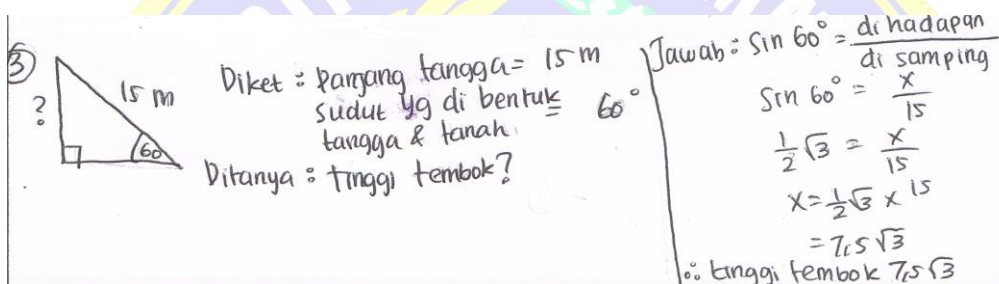 ③
?
15 m
60
Diket : Panjang tangga = 15 m
sudut yg di bentuk 60°
tangga & tanah.
Ditanya : tinggi tembok?
Jawab : Sin 60° = di hadapan / di samping
Sin 60° = x / 15
1/2 √3 = x / 15
x = 1/2 √3 x 15
= 7,5 √3
∴ tinggi tembok 7,5 √3